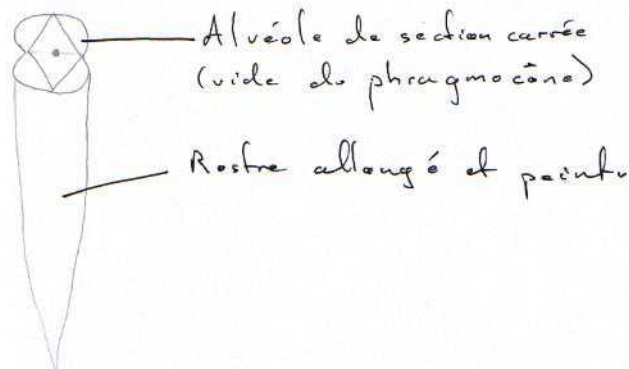 Alvéole de section carrée
(vide du phragmocône)
Rostre allongé et pointu